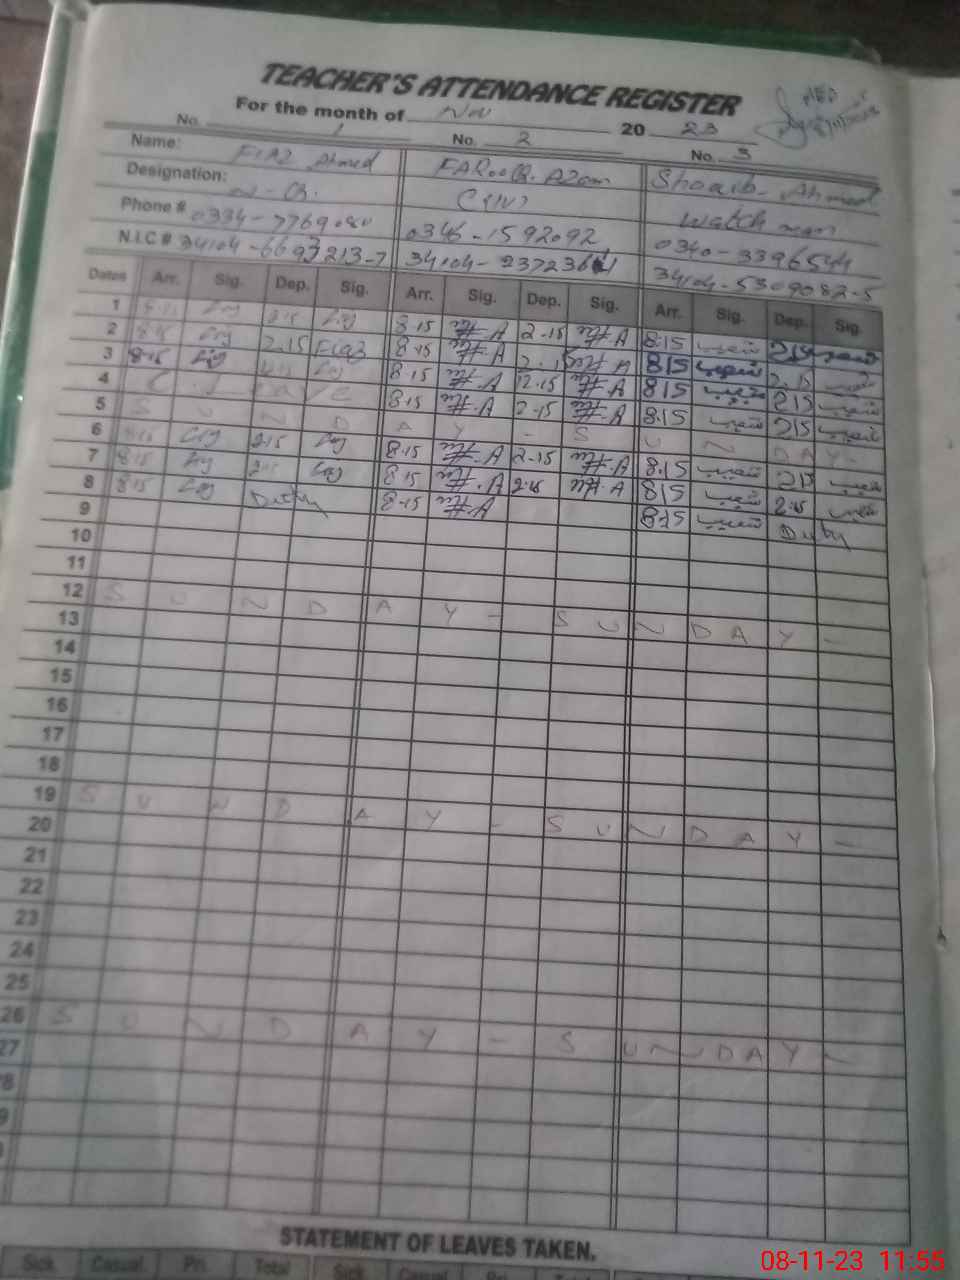 TEACHER'S ATTENDANCE REGISTER
For the month of Nov 20 23
No. 1 No. 2 No. 3
Name: FIAZ Ahmed FAROOQ. AZam Shoaib. Ahmed
Designation: N-Q. C(IV) watch man
Phone # 0334-7769080 0346-1592092 0340-3396544
N.I.C # 34104-6693213-7 34104-2372361 34104-5309082-5
Dates Arr. Sig. Dep. Sig. Arr. Sig. Dep. Sig. Arr. Sig. Dep. Sig.
1 8-15 2-15 8-15 2-15 8:15 شعیب 215 شعیب
2 8-15 2.15 Fiaz 8-15 2-15 815 شعیب 2.15 شعیب
3 8-15 8-15 2-15 815 شعیب 215 شعیب
4 L E A V E 8-15 2-15 8:15 شعیب 215 شعیب
5 S U N D A Y - S U N D A Y -
6 8-15 2-15 8-15 2-15 8.15 شعیب 215 شعیب
7 8-15 2-15 8-15 2-15 815 شعیب 2.15 شعیب
8 8-15 Duty 8-15 8-15 شعیب Duty
9
10
11
12 S U N D A Y - S U N D A Y -
13
14
15
16
17
18
19 S U N D A Y - S U N D A Y -
20
21
22
23
24
25
26 S U N D A Y - S U N D A Y -
27
STATEMENT OF LEAVES TAKEN.
Sick Casual Pri. Total Sick Casual
08-11-23 11:55